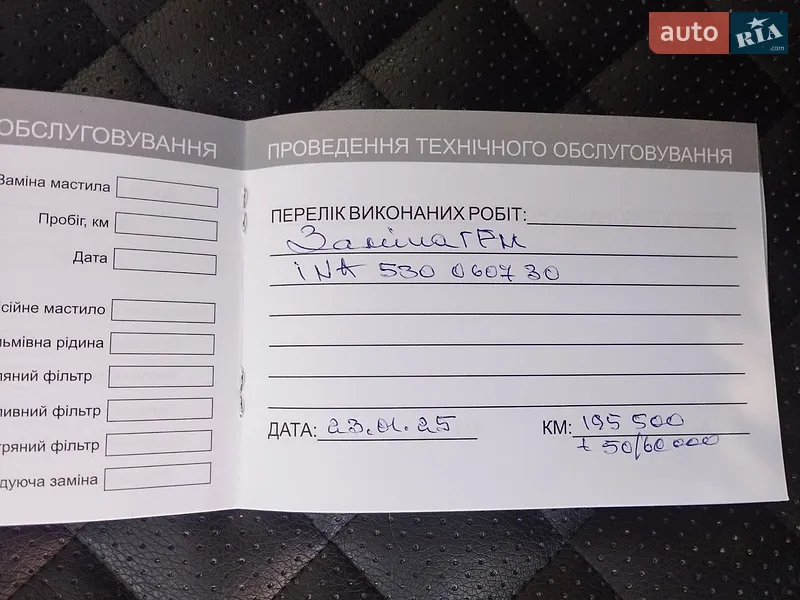 auto RIA .com
ОБСЛУГОВУВАННЯ
Заміна мастила
Пробіг, км
Дата
сійне мастило
льмівна рідина
ляний фільтр
ливний фільтр
тряний фільтр
дуюча заміна
ПРОВЕДЕННЯ ТЕХНІЧНОГО ОБСЛУГОВУВАННЯ
ПЕРЕЛІК ВИКОНАНИХ РОБІТ:
Заміна ГРМ
INA 530 0607 30
ДАТА: 23.01.25
КМ: 195 500
+ 50/60 000